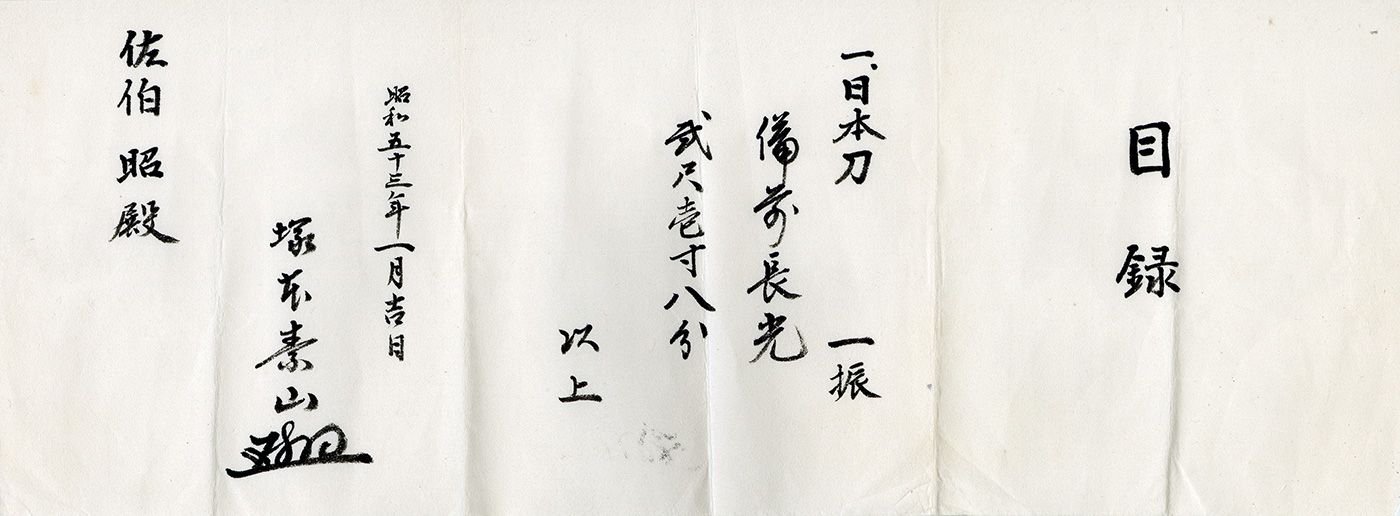 目録
一、日本刀 一振
備前長光
弐尺壱寸八分
以上
昭和五十三年一月吉日
塚本素山
佐伯昭殿